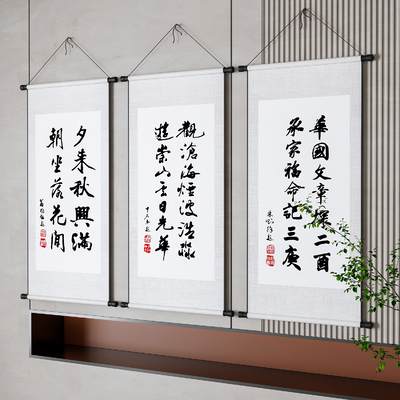 華國文章探二酉
承家福命記三庚
觀滄海煙波浩淼
遊崇山日光華
夕来秋興滿
朝坐落花間